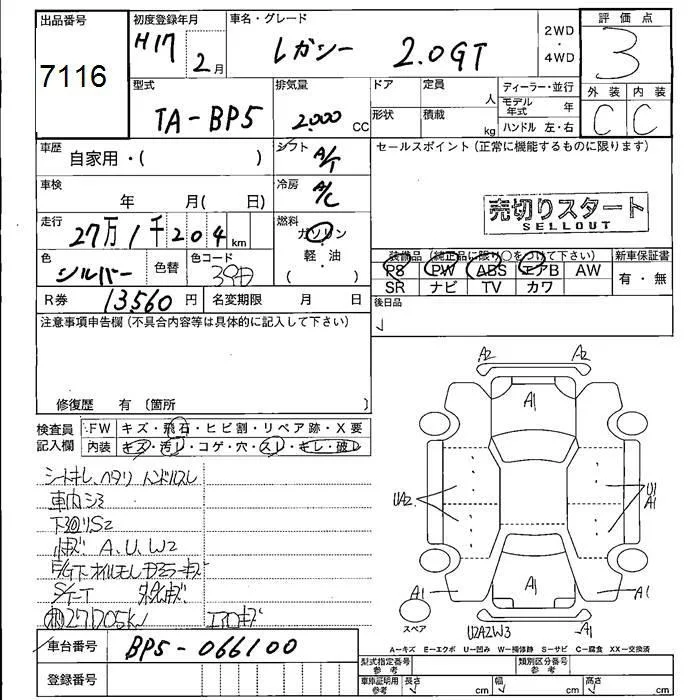 出品番号
7116
初度登録年月
H17 2月
車名・グレード
レガシー 2.0GT
2WD
・
4WD
評価点
3
外装 内装
C C
型式
TA-BP5
排気量
2,000 CC
ドア
形状
定員
人
積載
kg
ディーラー・並行
モデル年式 年
ハンドル 左・右
車歴
自家用・( )
シフト
A/T
セールスポイント(正常に機能するものに限ります)
車検
年 月( 日)
冷房
A/C
売切りスタート
SELLOUT
走行
27万1千204km
燃料
ガソリン
・
軽油
( )
色
シルバー
色替
色コード
39D
装備品(純正品に限り○をつけて下さい)
PS PW ABS エアB AW
SR ナビ TV カワ
新車保証書
有・無
R券 13,560円
名変期限 月 日
後日品
注意事項申告欄(不具合内容等は具体的に記入して下さい)
修復歴 有〔箇所 〕
検査員
記入欄
FW キズ・飛石・ヒビ割・リペア跡・X要
内装 キズ・汚レ・コゲ・穴・スレ・キレ・破レ
シートキレ、ヘタリ ハンドルスレ
車内シミ
下廻りS2
小キズ A.U.W2
エアロキズ
A2 A2
A1
UA2
U1
A1
A1
A1 A1
U2A2W3
スペア
A−キズ E−エクボ U−凹み W−補修跡 S−サビ C−腐食 XX−交換済
車台番号
BP5-066100
登録番号
型式指定番号
参考
類別区分番号
参考
車庫証明用
参考
長さ cm
幅 cm
高さ cm